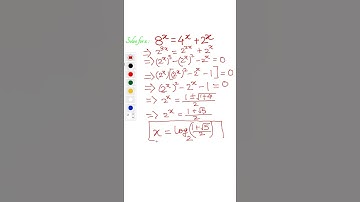 Solve for x:
8^x = 4^x + 2^x
⇒ 2^{3x} = 2^{2x} + 2^x
⇒ (2^x)^3 - (2^x)^2 - 2^x = 0
⇒ (2^x)[(2^x)^2 - 2^x - 1] = 0
⇒ (2^x)^2 - 2^x - 1 = 0
⇒ 2^x = \frac{1 ± \sqrt{1+4}}{2}
⇒ 2^x = \frac{1+\sqrt{5}}{2}
x = log_2(\frac{1+\sqrt{5}}{2})